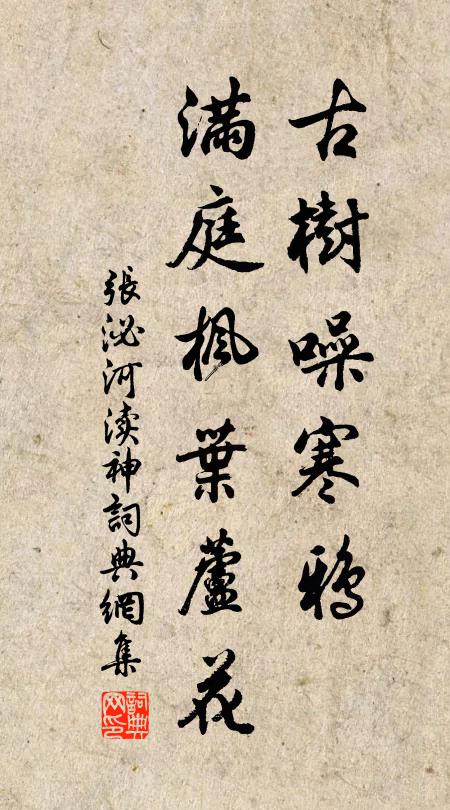 古樹噪寒鴉
滿庭楓葉蘆花
張泌河渎神詞典網集
詞典网印